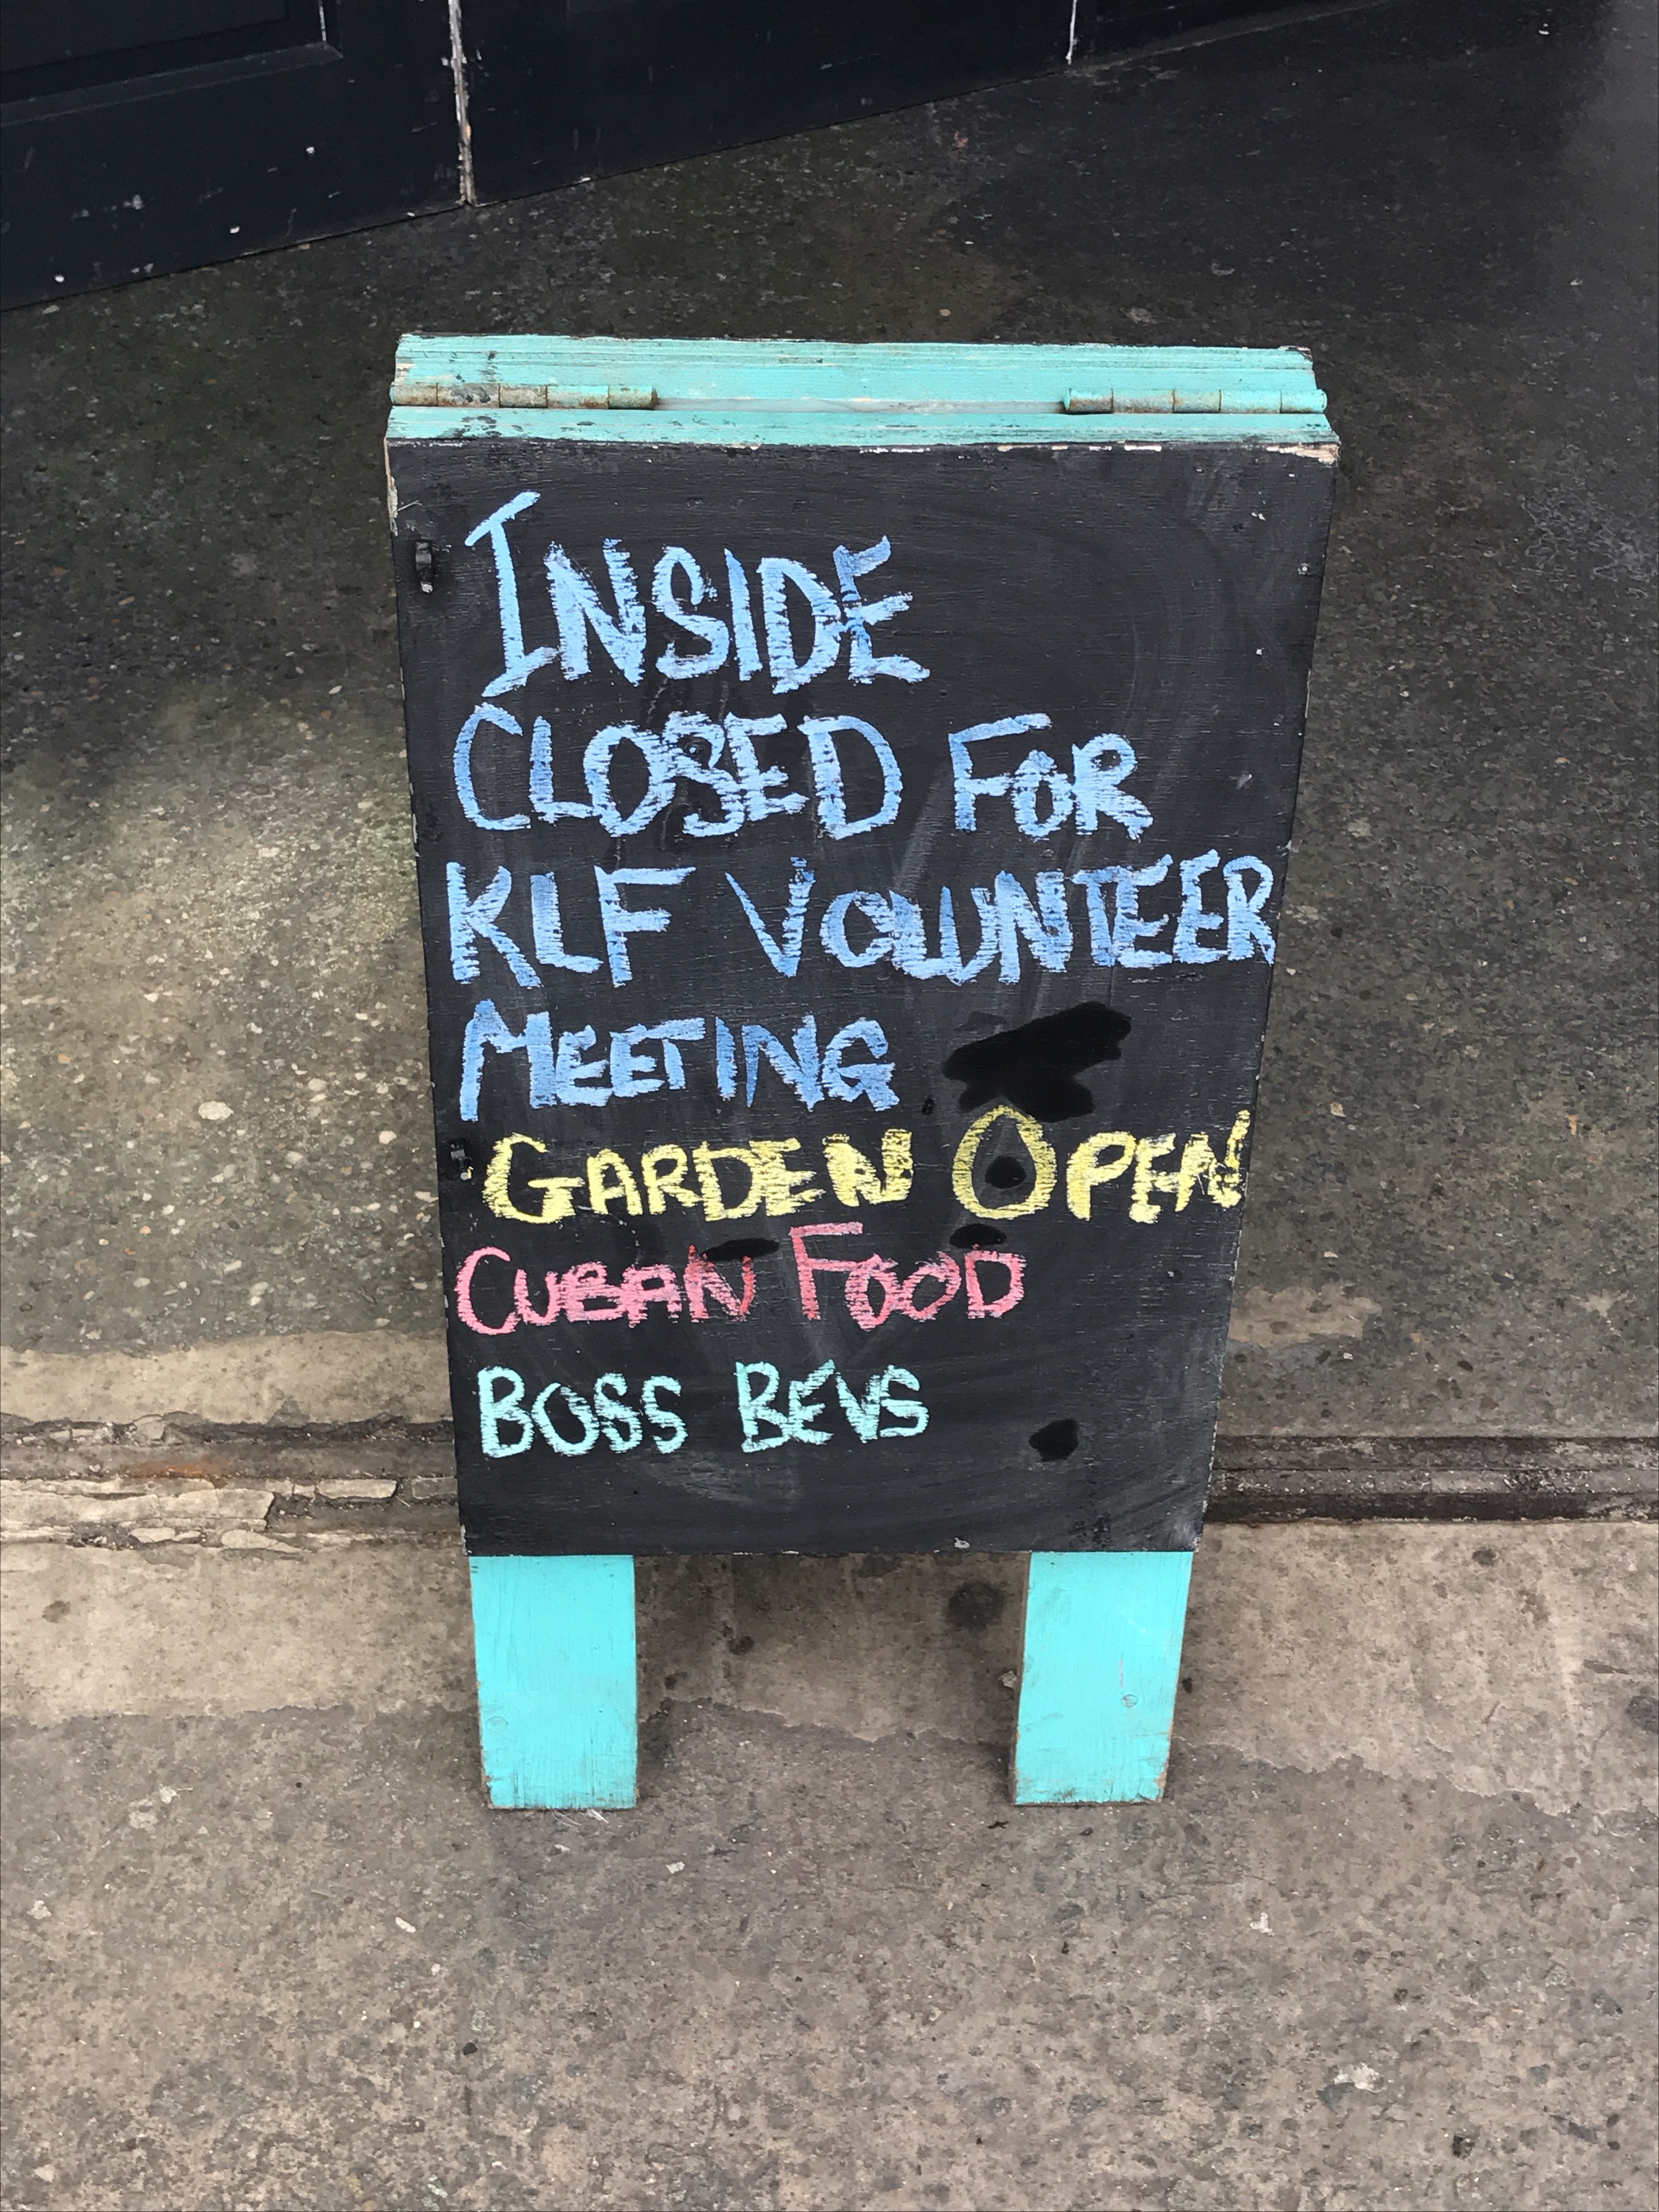 INSIDE
CLOSED FOR
KLF VOLUNTEER
MEETING
GARDEN OPEN
CUBAN FOOD
BOSS BEVS